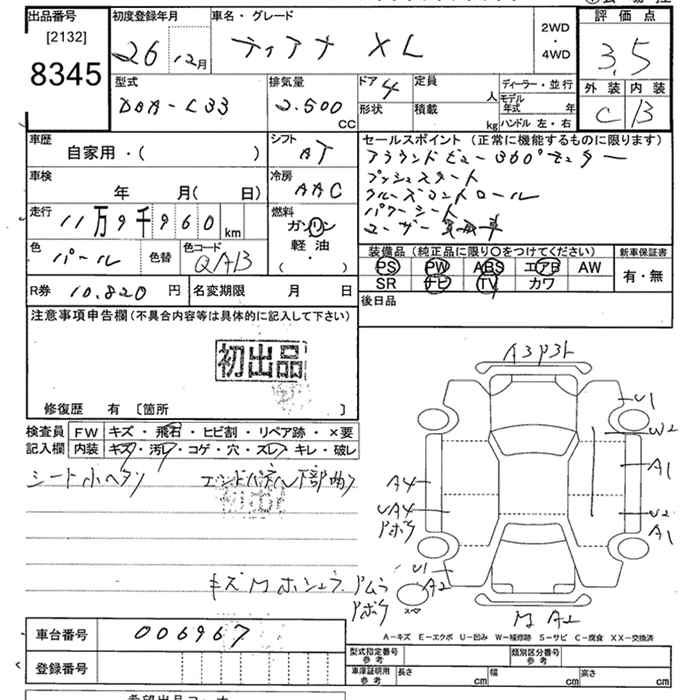 出品番号
[2132]
8345
初度登録年月
26 12月
車名・グレード
ティアナ XL
2WD
・
4WD
評価点
3.5
外装 内装
C B
型式
DBA-L33
排気量
2.500
CC
ドア 4
形状
定員
人
積載
kg
ディーラー・並行
モデル年式 年
ハンドル 左・右
車歴
自家用・( )
シフト
AT
車検
年 月( 日)
冷房
AAC
走行
11万9千960 km
燃料
ガソリン
軽油
( ・ )
色
パール
色替
色コード
QAB
R券 10.820 円
名変期限 月 日
セールスポイント (正常に機能するものに限ります)
アラウンドビュー 360°モニター
プッシュスタート
クルーズコントロール
パワーシート
ユーザー買取車
装備品 (純正品に限り〇をつけてください)
PS PW ABS エアB AW
SR ナビ TV カワ
新車保証書
有・無
後日品
注意事項申告欄(不具合内容等は具体的に記入して下さい)
初出品
修復歴 有 〔箇所 〕
検査員記入欄
FW キズ・飛石・ヒビ割・リペア跡・×要
内装 キズ・汚レ・コゲ・穴・スレ・キレ・破レ
シート小ヘタリ
エンドパネル下部曲り
キズ M ホシュラ. ドムラ
アボク
A3P3ト
U1
W2
A1
A4
UA4
アボク
U2
A1
U1
A2
スペ
M A2
A－キズ E－エクボ U－凹み W－補修跡 S－サビ C－腐食 XX－交換済
車台番号 006967
登録番号
型式指定番号
参考
類別区分番号
参考
車庫証明用
参考
長さ cm
幅 cm
高さ cm